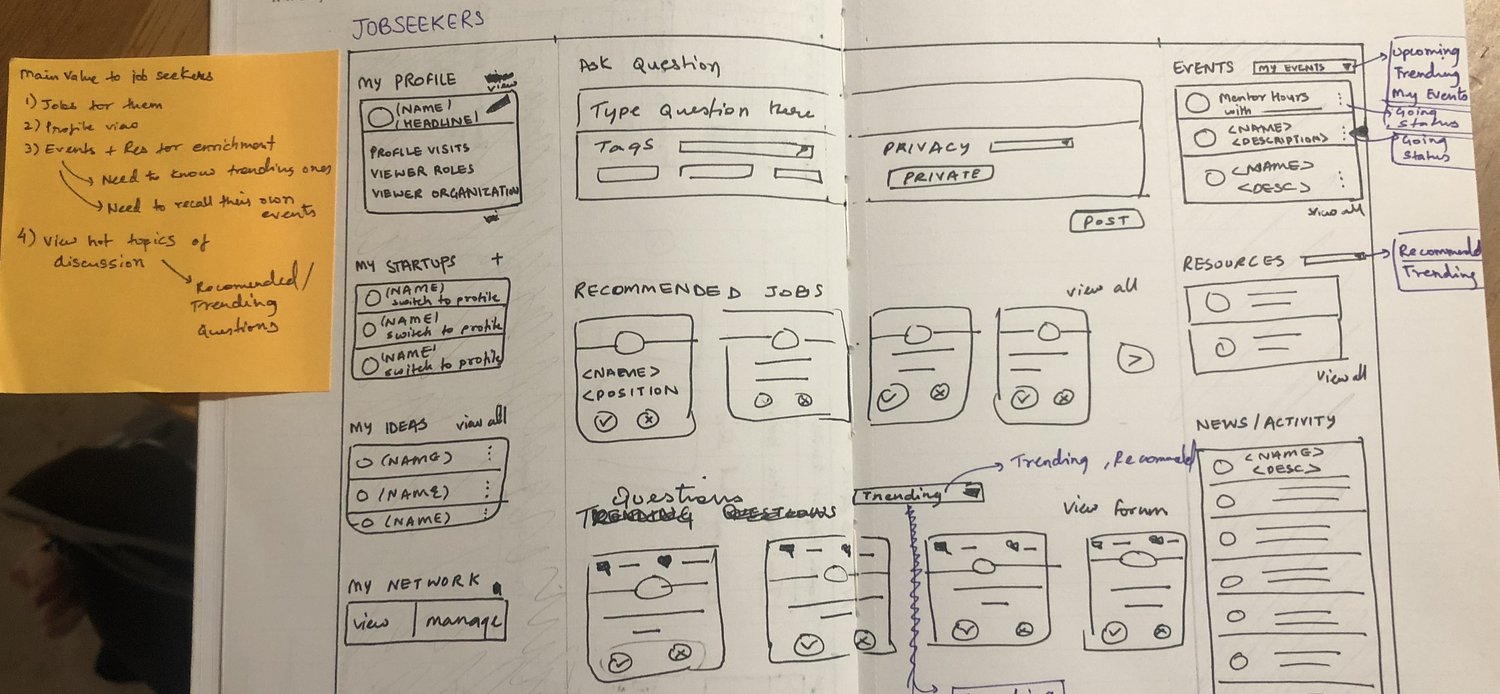 JOBSEEKERS
Main Value to job seekers
1) Jobs for them
2) Profile view
3) Events + Res for enrichment
Need to know trending ones
Need to recall their own
events
4) View hot topics of
discussion
Recomended/
Trending
Questions
MY PROFILE
view
(NAME)
(HEADLINE)
PROFILE VISITS
VIEWER ROLES
VIEWER ORGANIZATION
MY STARTUPS +
(NAME)
switch to profile
(NAME)
switch to profile
(NAME)
switch to profile
MY IDEAS view all
(NAME)
(NAME)
(NAME)
MY NETWORK
view manage
ASK Question
Type Question here
Tags
PRIVACY
PRIVATE
POST
RECOMMENDED JOBS
view all
<NAME>
<POSITION
>
Questions
TRENDING QUESTIONS
Trending
Trending, Recommended
View forum
EVENTS MY EVENTS
Mentor Hours
with
<NAME>
<DESCRIPTION>
<NAME>
<DESC>
View all
Upcoming
Trending
My Events
Going
Status
Going
status
RESOURCES
Recommended
Trending
View all
NEWS/ACTIVITY
<NAME>
<DESC>